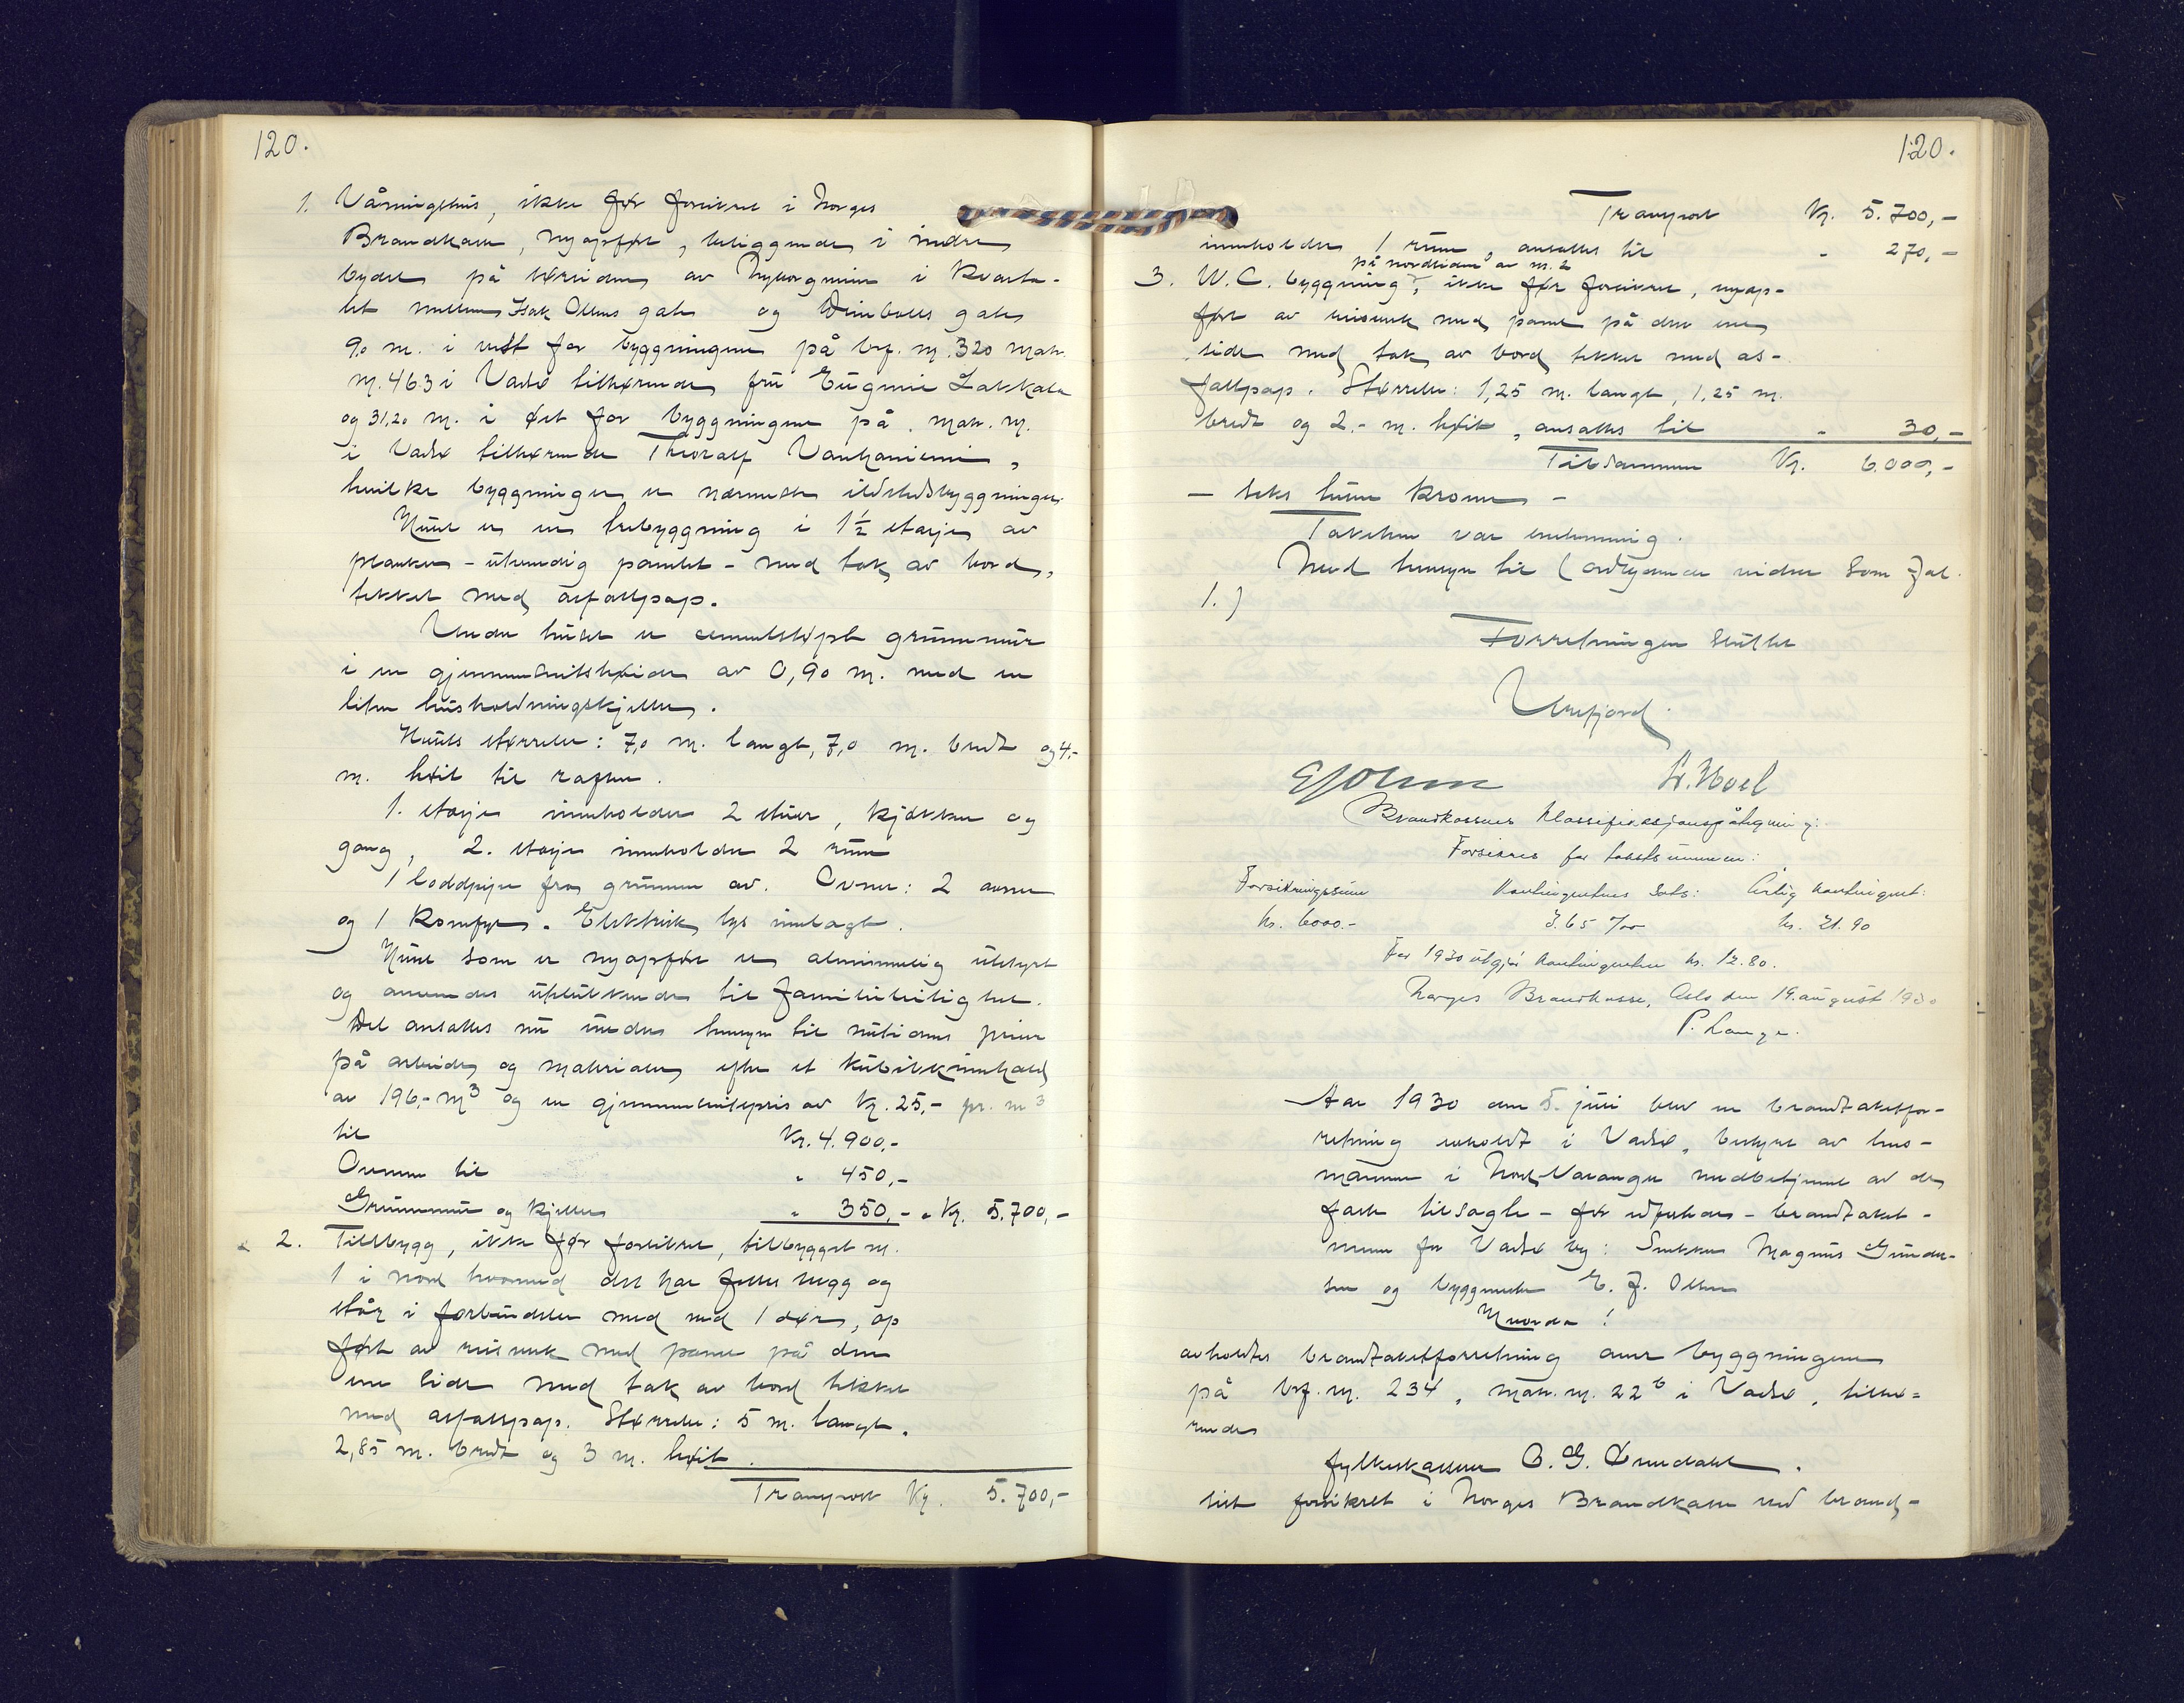 120.
1. Våningshus, ikke før forsikret i Norges
Brandkasse, nyopført, beliggende i indre
bydel på nørsiden av Nyborgveien i kvarta-
let mellem Isak Olsens gate og Deinbolls gate
90 m. i vest for bygningene på brf. nr. 320 matr.
nr. 463 i Vadsø tilhørende fru Eugenie Lakkala
og 31,20 m. i øst for byggningene på matr. nr.
i Vadsø tilhørende Thoralf Vanhaniemi,
hvilke byggninger er nærmeste ildstedsbyggninger.
Huset er en trebyggning i 1½ etasje av
planker - utvendig panelt - med tak av bord,
tekket med asfaltpap.
Under huset er cementstøpt grunnmur
i en gjennemsnitshøide av 0,90 m. med en
liten husholdningskjeller.
Husets størrelse: 7,0 m. langt, 7,0 m. bredt og 4,-
m. høit til raften.
1. etasje inneholder 2 stuer, kjøkken og
gang, 2. etasje inneholder 2 rum
1 loddpipe fra grunnen av. Ovner: 2 ovner
og 1 komfyr. Elektrisk lys innlagt.
Huset som er nyopført er almindelig utstyrt
og anvendes utelukkende til familieleilighet.
Det ansettes nu under hensyn til nutidens priser
på arbeide og materialer efter et kubikkinnhold
av 196,- m³ og en gjennemsnitspris av kr. 25,- pr. m³
til kr. 4.900,-
Ovnene til " 450,-
Grunnmur og kjeller " 350,- " kr. 5.700,-
2. Tilbygg, ikke før forsikret, tilbygget nr.
1 i nord hvormed det har felles vegg og
står i forbindelse med ved 1 dør, op
ført av reisverk med panel på den
ene side med tak av bord tekket
med asfaltpap. Størrelse: 5 m. langt,
2,85 m. bredt og 3 m. høit.
Transport kr. 5.700,-
120.
Transport kr. 5.700,-
inneholder 1 rum, ansettes til " 270,-
på nordsiden av nr. 2
3. W.C. byggning, ikke før forsikret, nyop-
ført av reisverk med panel på den ene
side med tak av bord tekket med as-
faltpap. Størrelse: 1,25 m. langt, 1,25 m.
bredt og 2,- m. høit, ansettes til " 30,-
Tilsammen kr. 6.000,-
- seks tusen kroner -
Taksten var enstemmig.
Med hensyn til (ordlyden videre som fol.
1.)
Forretningen sluttet
Urefjord.
E J Olsen Kr. Hoel
Brandkassens klassifikasjonspåtegning:
Forsikres for takstsummen:
Forsikringssum Kontingentens sats: Årlig kontingent:
kr. 6000.- 3.65 ‰ kr. 21.90
For 1930 utgjør kontingenten kr. 12.80.
Norges Brandkasse, Oslo den 19. august 1930
P. Lange.
Aar 1930 den 5. juni blev en brandtakstfor-
retning avholdt i Vadsø, bestyrt av lens-
mannen i Nord-Varanger medbetjent av de
faste tilsagte - før edfestede - brandtakst-
menn for Vadsø by: Snekker Magnus Gunder-
sen og byggmester E. J. Olsen
Hvorda!
avholdtes brandtakstforretning over byggningene
på brf. nr. 234, matr. nr. 22 b i Vadsø, tilhø=
rende
fylkeskasserer
sist forsikret i Norges Brandkasse ved brand-